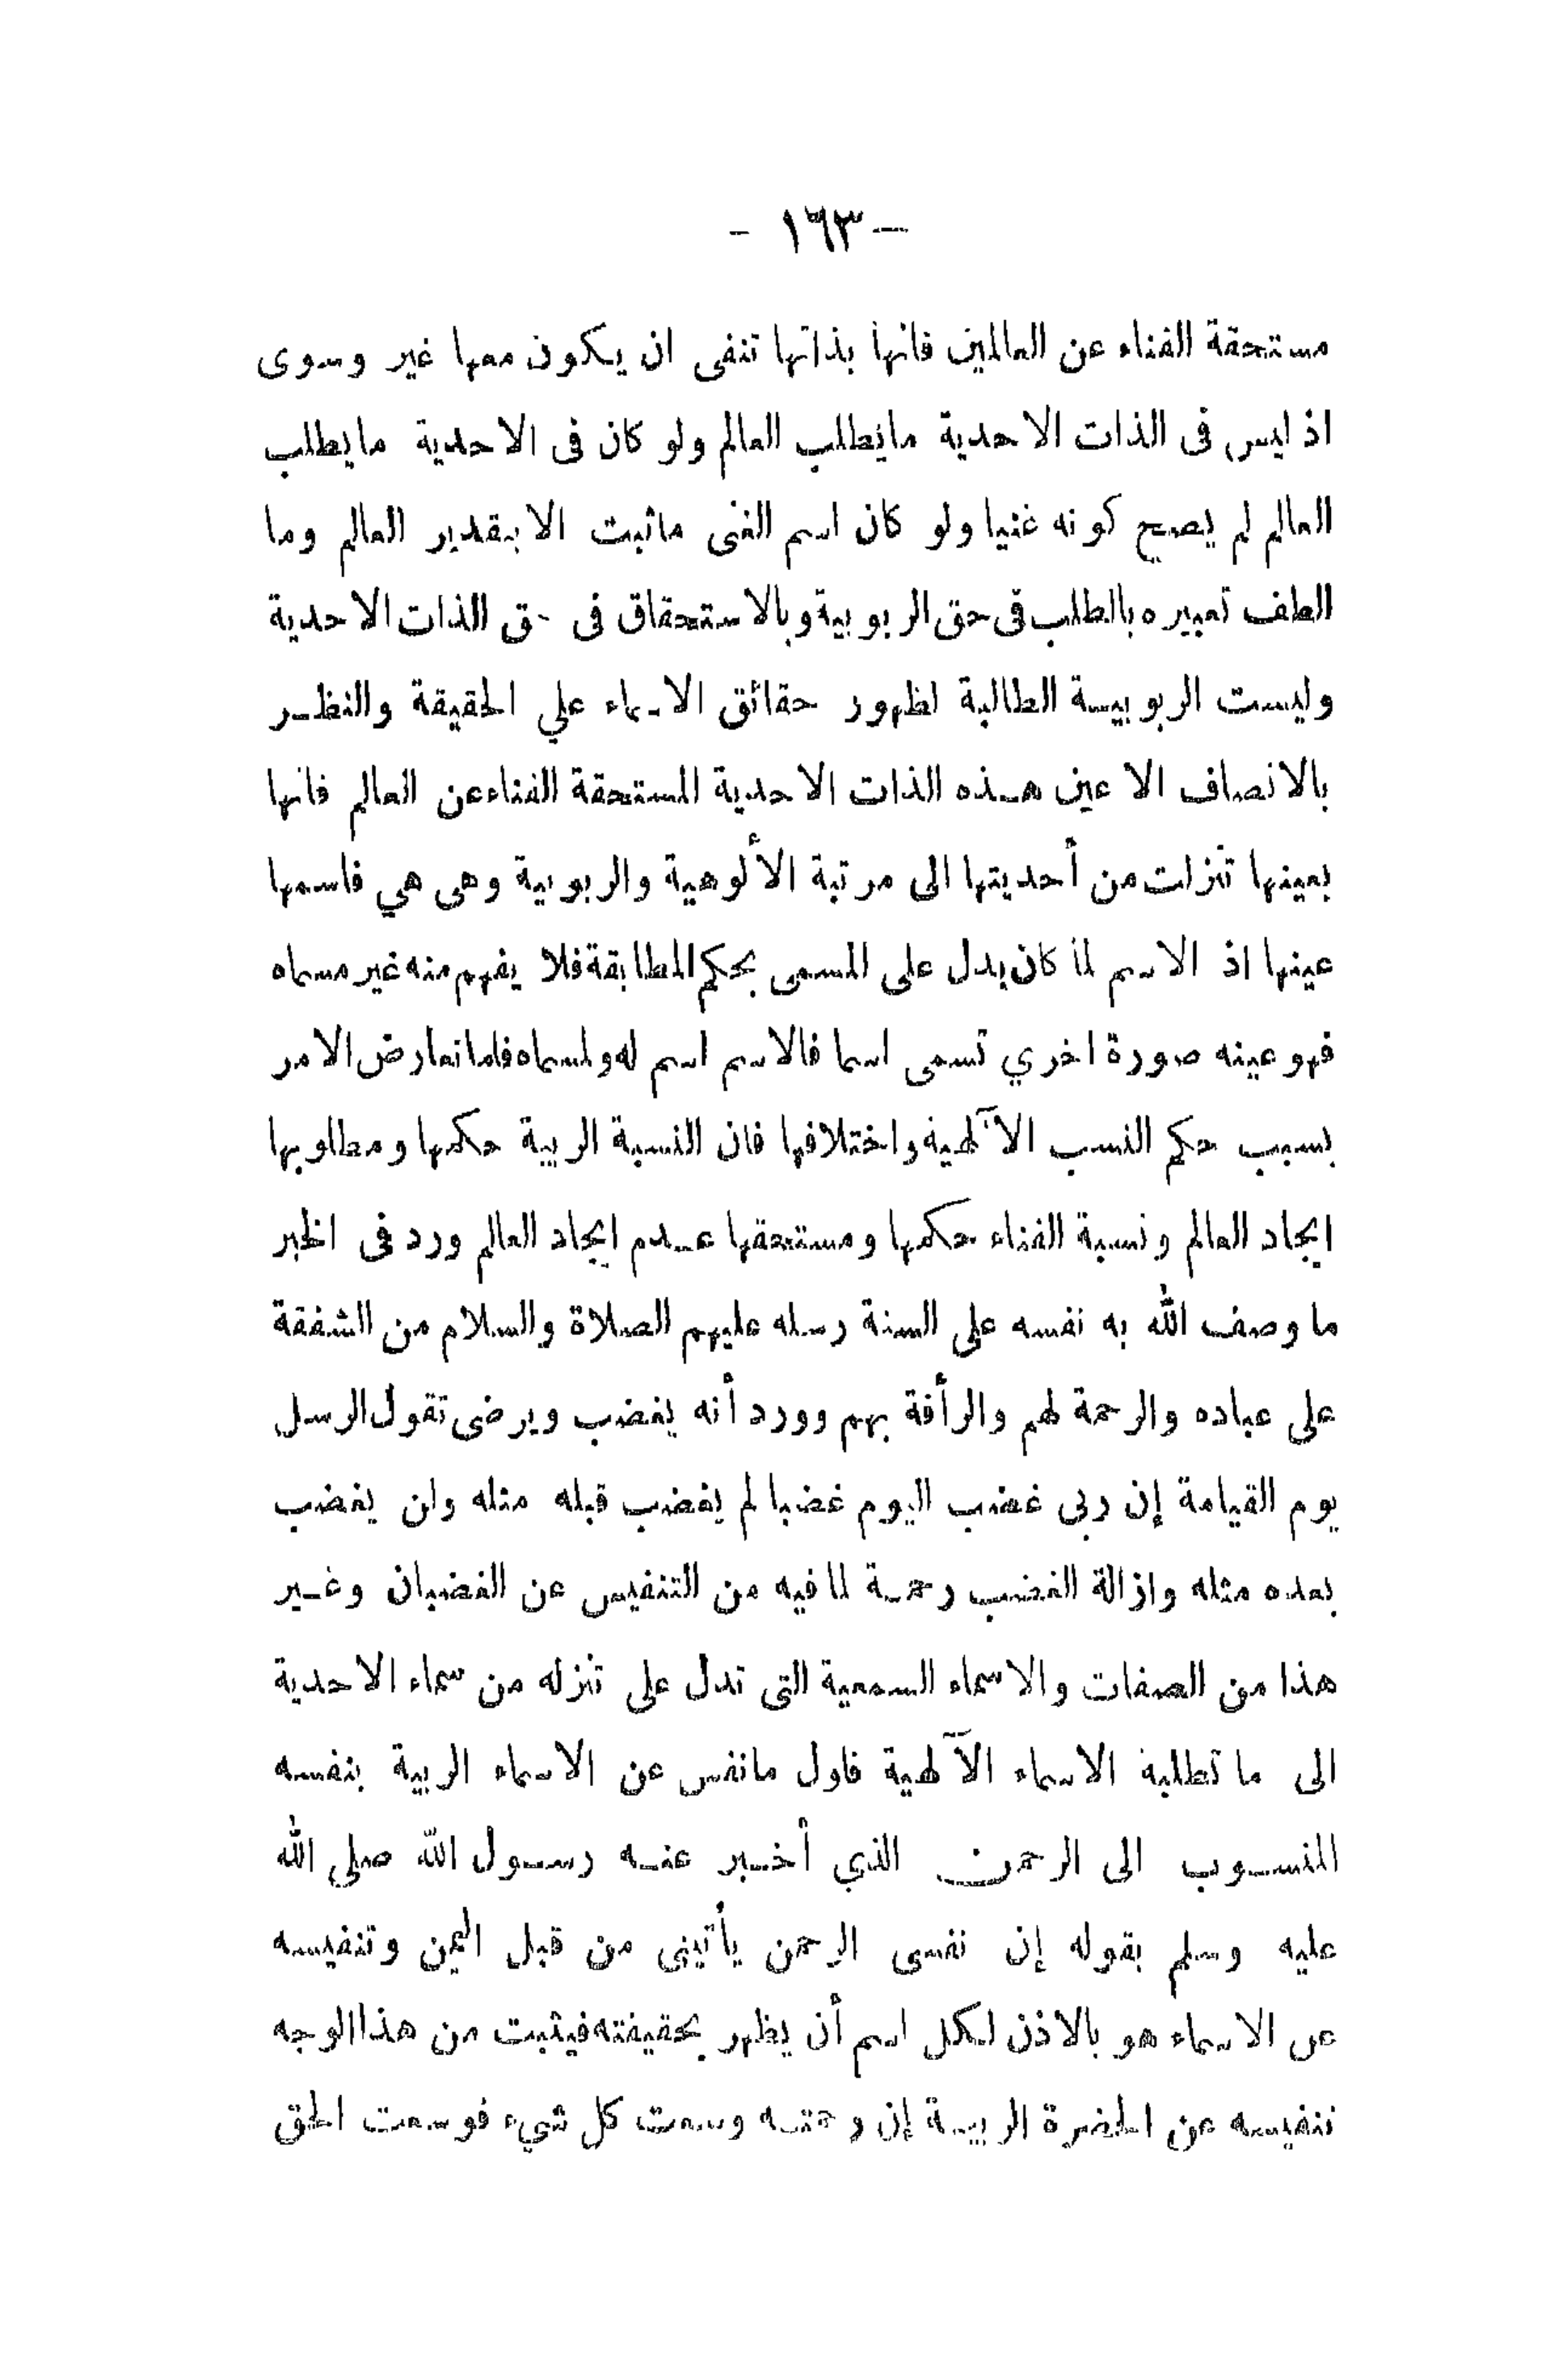 - ١٦٣ -
مستحقة الغناء عن العالمين فانها بذاتها تنفى ان يكون معها غير وسوى
اذ ليس فى الذات الاحدية مايطلب العالم ولو كان فى الاحدية مايطلب
العالم لم يصح كونه غنيا ولو كان اسم الغنى ماثبت الا بتقدير العالم وما
الطف تعبيره بالطلب فى حق الربوبية وبالاستحقاق فى حق الذات الاحدية
وليست الربوبية الطالبة لظهور حقائق الاسماء علي الحقيقة والنظر
بالانصاف الا عين هذه الذات الاحدية المستحقة الغناء عن العالم فانها
بعينها تنزلت من أحديتها الى مرتبة الألوهية والربوبية وهى هي فاسمها
عينها اذ الاسم لما كان يدل على المسمى بحكم المطابقة فلا يفهم منه غير مسماه
فهو عينه صورة اخري تسمى اسما فالاسم اسم له ولمسماه فلما تعارض الامر
بسبب حكم النسب الآلهية واختلافها فان النسبة الربية حكمها ومطلوبها
ايجاد العالم ونسبة الغناء حكمها ومستحقها عدم ايجاد العالم ورد فى الخبر
ما وصف الله به نفسه على السنة رسله عليهم الصلاة والسلام من الشفقة
على عباده والرحمة لهم والرأفة بهم وورد أنه يغضب ويرضى تقول الرسل
يوم القيامة إن ربى غضب اليوم غضبا لم يغضب قبله مثله ولن يغضب
بعده مثله وازالة الغضب رحمة لما فيه من التنفيس عن الغضبان وغير
هذا من الصفات والاسماء السمعية التى تدل على تنزله من سماء الاحدية
الى ما تطلبه الاسماء الآلهية فاول مانفس عن الاسماء الربية بنفسه
المنسوب الى الرحمن الذي أخبر عنه رسول الله صلى الله
عليه وسلم بقوله إن نفسى الرحمن يأتينى من قبل اليمن وتنفيسه
عن الاسماء هو بالاذن لكل اسم أن يظهر بحقيقته فيثبت من هذا الوجه
تنفيسه عن الحضرة الربية إن رحمته وسعت كل شيء فوسعت الحق